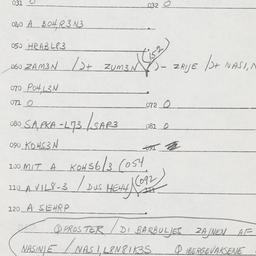 031 0 032 0
040 A BOH,R3N3
050 HRABLP3
060 ZAM3N /2+ ZUM3N (152) - ZAJE /2+ NASI,N
070 POH,L3N
071 0 072 0
080 SA,PKA-L73 / SAP3 081 0
090 KOHS3N
100 MIT A KOHS6/3 (054
110 A VIL8-3 / DUS (092)
120 A SEHRP
PROSTER / DI BARBULJES ZAJNEN AF
NASINJE / NASI,L8N8IK3S IBERGEVAKSENE